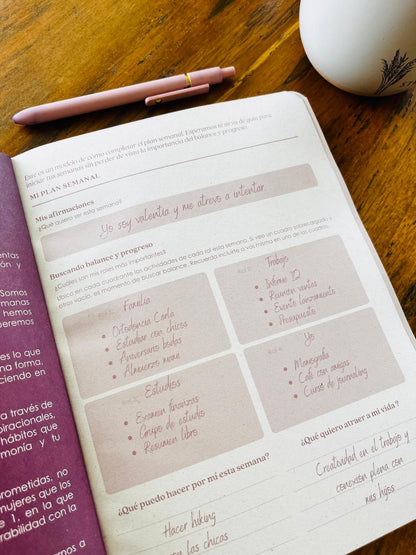 Este es un modelo de cómo completar el plan semanal. Esperamos te sirva de guía para
iniciar tus semanas sin perder de vista la importancia del balance y progreso.
MI PLAN SEMANAL
Mis afirmaciones
¿Qué quiero ser esta semana?
Yo soy valentía y me atrevo a intentar
Buscando balance y progreso
¿Cuáles son mis roles más importantes?
Ubica en cada cuadrante las actividades de cada rol esta semana. Si ves un cuadro sobrecargado y
otros vacío, es momento de buscar balance. Recuerda incluirte a vos misma en uno de los cuadros.
Familia
Ortodoncia Carla
Estudiar con chicos
Aniversario bodas
Almuerzo mami
Trabajo
Informe TQ
Reunión ventas
Evento lanzamiento
Presupuesto
Estudios
Examen finanzas
Grupo de estudio
Resumen libro
Yo
Monografía
Café con amigas
Curso de journaling
¿Qué puedo hacer por mí esta semana?
Hacer hiking
con las chicas
¿Qué quiero atraer a mi vida?
Creatividad en el trabajo y
conexión plena con
mis hijos
entas
ión y
Somos
manas
hemos
peremos
es lo que
na forma,
ciendo en
a través de
piracionales,
hábitos que
monía y tu
rometidas, no
mujeres que los
e 1, en la que
rabilidad con la
amos a